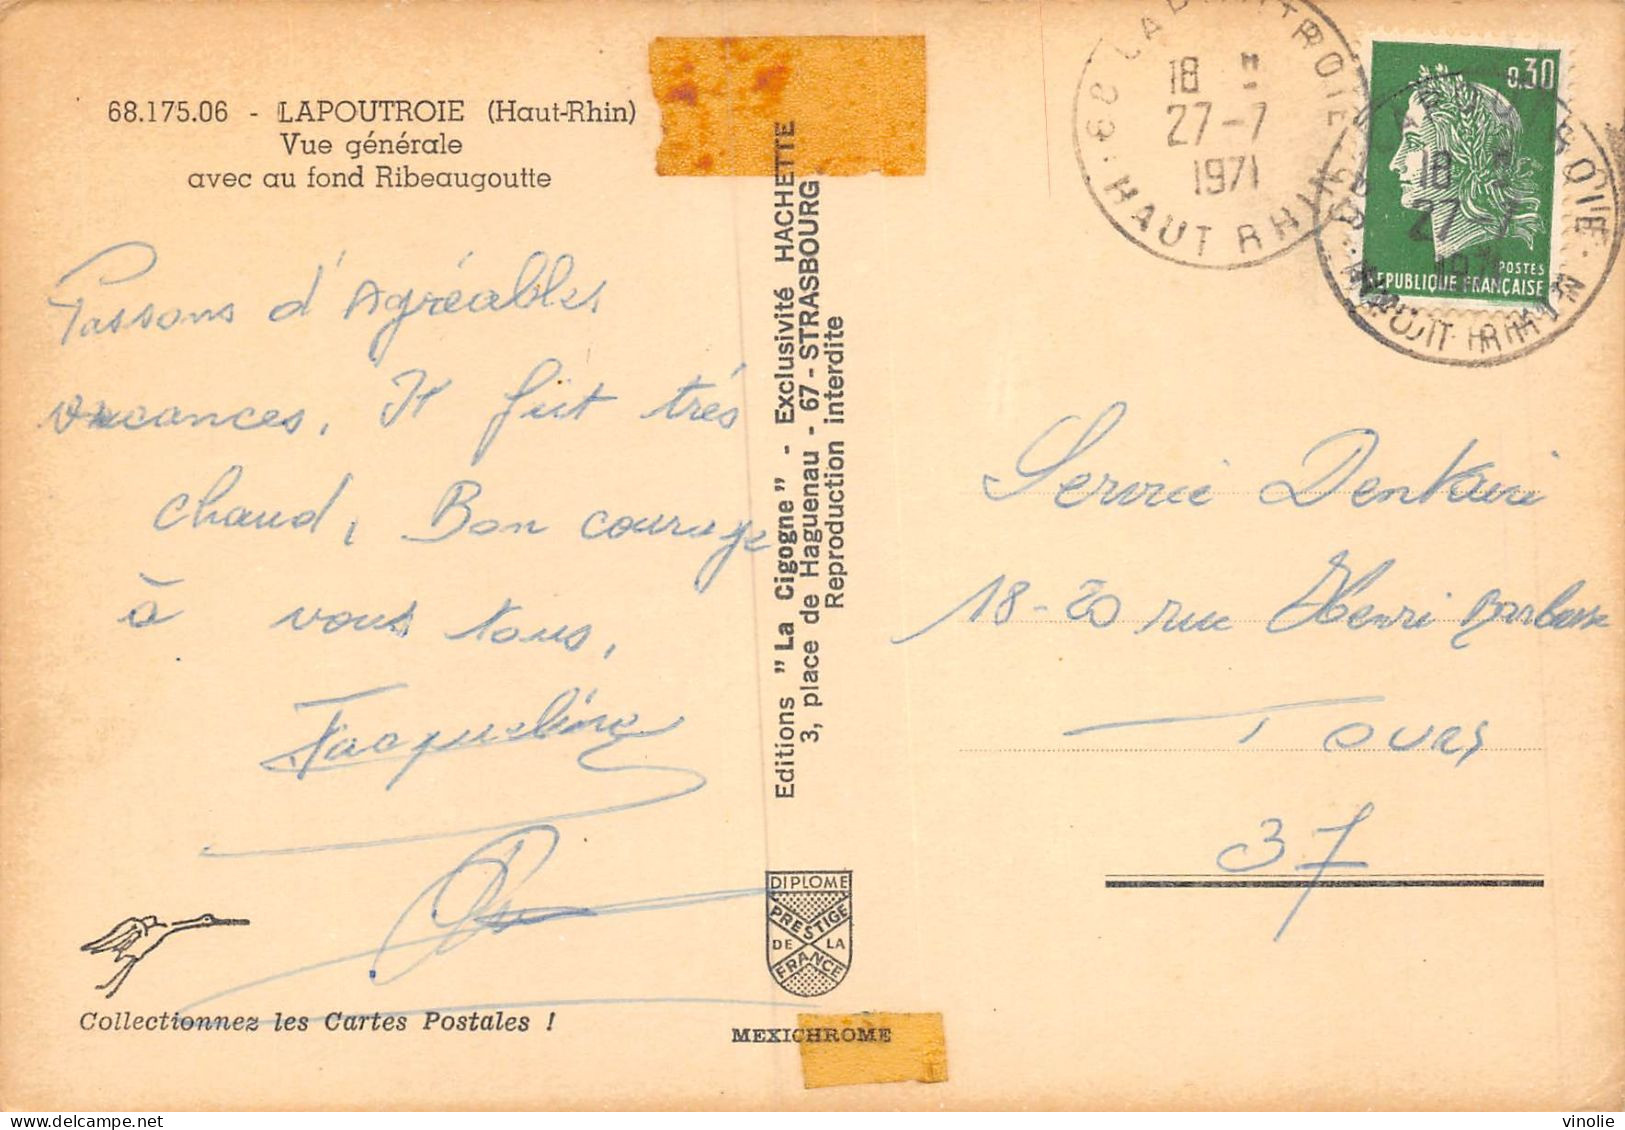 68.175.06 - LAPOUTROIE (Haut-Rhin)
Vue générale
avec au fond Ribeaugoutte
Passons d'Agréables
vacances. Il fait très
chaud, Bon courage
à vous tous,
Jacqueline
Collectionnez les Cartes Postales !
Editions "La Cigogne" - Exclusivité HACHETTE
3, place de Haguenau - 67 - STRASBOURG
Reproduction interdite
DIPLOME
PRESTIGE
DE LA
FRANCE
MEXICHROME
68 LAPOUTROIE
18 H
27-7
1971
HAUT RHIN
0.30
POSTES
REPUBLIQUE FRANÇAISE
18
27 7
1971
Service Dentaire
18-20 rue Henri Barbusse
Tours
37
vinolie